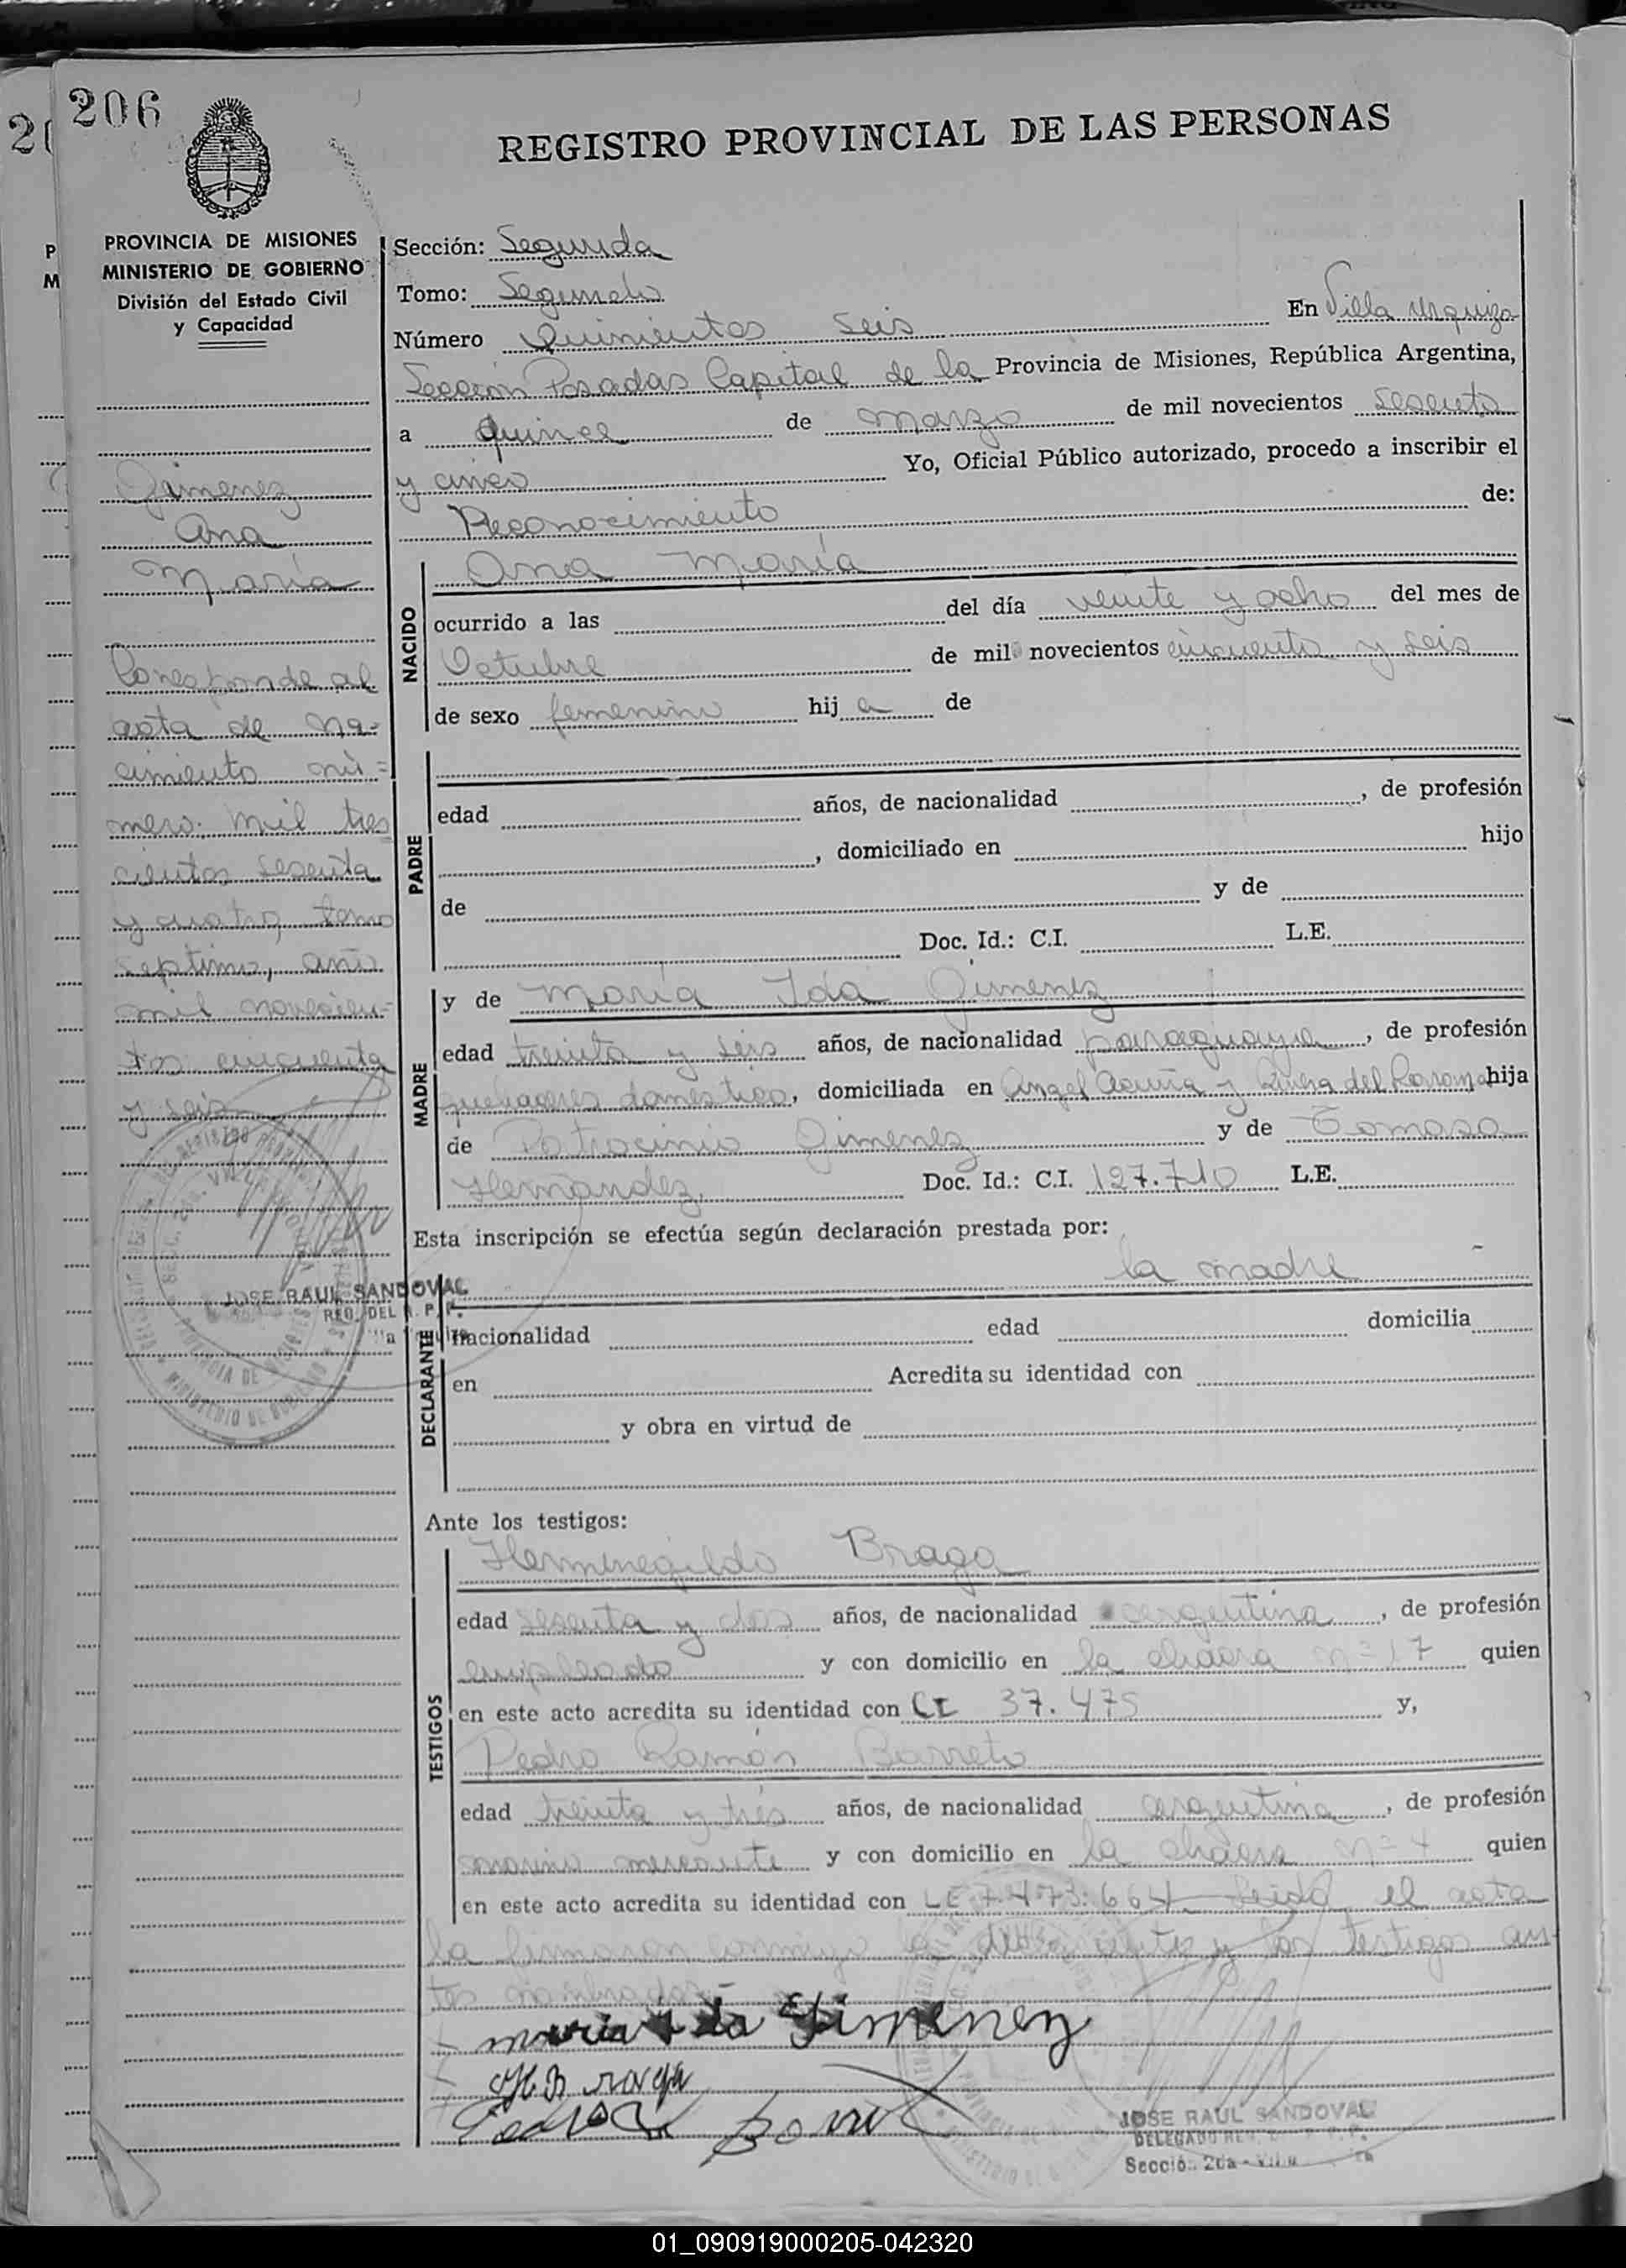 206
REGISTRO PROVINCIAL DE LAS PERSONAS
PROVINCIA DE MISIONES
MINISTERIO DE GOBIERNO
División del Estado Civil
y Capacidad
Gimenez
Ana
María
Corresponde al
acta de na-
cimiento nú-
mero: mil tres
cientos sesenta
y cuatro, tomo
septimo, año
mil novecien-
tos cincuenta
y seis
JOSE RAUL SANDOVAL
REG. DEL R. P. P.
Sección: Segunda
Tomo: Segundo
Número Quinientos Seis En Villa Urquiza
Sección Posadas Capital de la Provincia de Misiones, República Argentina,
a quince de marzo de mil novecientos sesenta
y cinco Yo, Oficial Público autorizado, procedo a inscribir el
Reconocimiento de:
NACIDO
Ana María
ocurrido a las del día veinte y ocho del mes de
Octubre de mil novecientos cincuenta y seis
de sexo femenino hij a de
PADRE
edad años, de nacionalidad , de profesión
, domiciliado en hijo
de y de
Doc. Id.: C.I. L.E.
MADRE
y de María Ida Gimenez
edad treinta y seis años, de nacionalidad paraguaya, de profesión
quehaceres domestico, domiciliada en Angel Acuña y Rivera del hija
de Patrocinio Gimenez y de Tomasa
Hernandez, Doc. Id.: C.I. 127.710 L.E.
Esta inscripción se efectúa según declaración prestada por:
DECLARANTE
la madre
nacionalidad edad domicilia
en Acredita su identidad con
y obra en virtud de
Ante los testigos:
TESTIGOS
Hermenegildo Braga
edad sesenta y dos años, de nacionalidad argentina, de profesión
empleado y con domicilio en la chacra n= 17 quien
en este acto acredita su identidad con CI 37.475 y,
Pedro Ramón Barreto
edad treinta y trés años, de nacionalidad argentina, de profesión
marino mercante y con domicilio en la chacra n= 4 quien
en este acto acredita su identidad con LE 7.473.664 Leida el acta
la firmaron conmigo la y los testigos an-
tes nombrados
maria Ida Gimenez
H. Braga
JOSE RAUL SANDOVAL
DELEGADO
Sección 2da
01_090919000205-042320